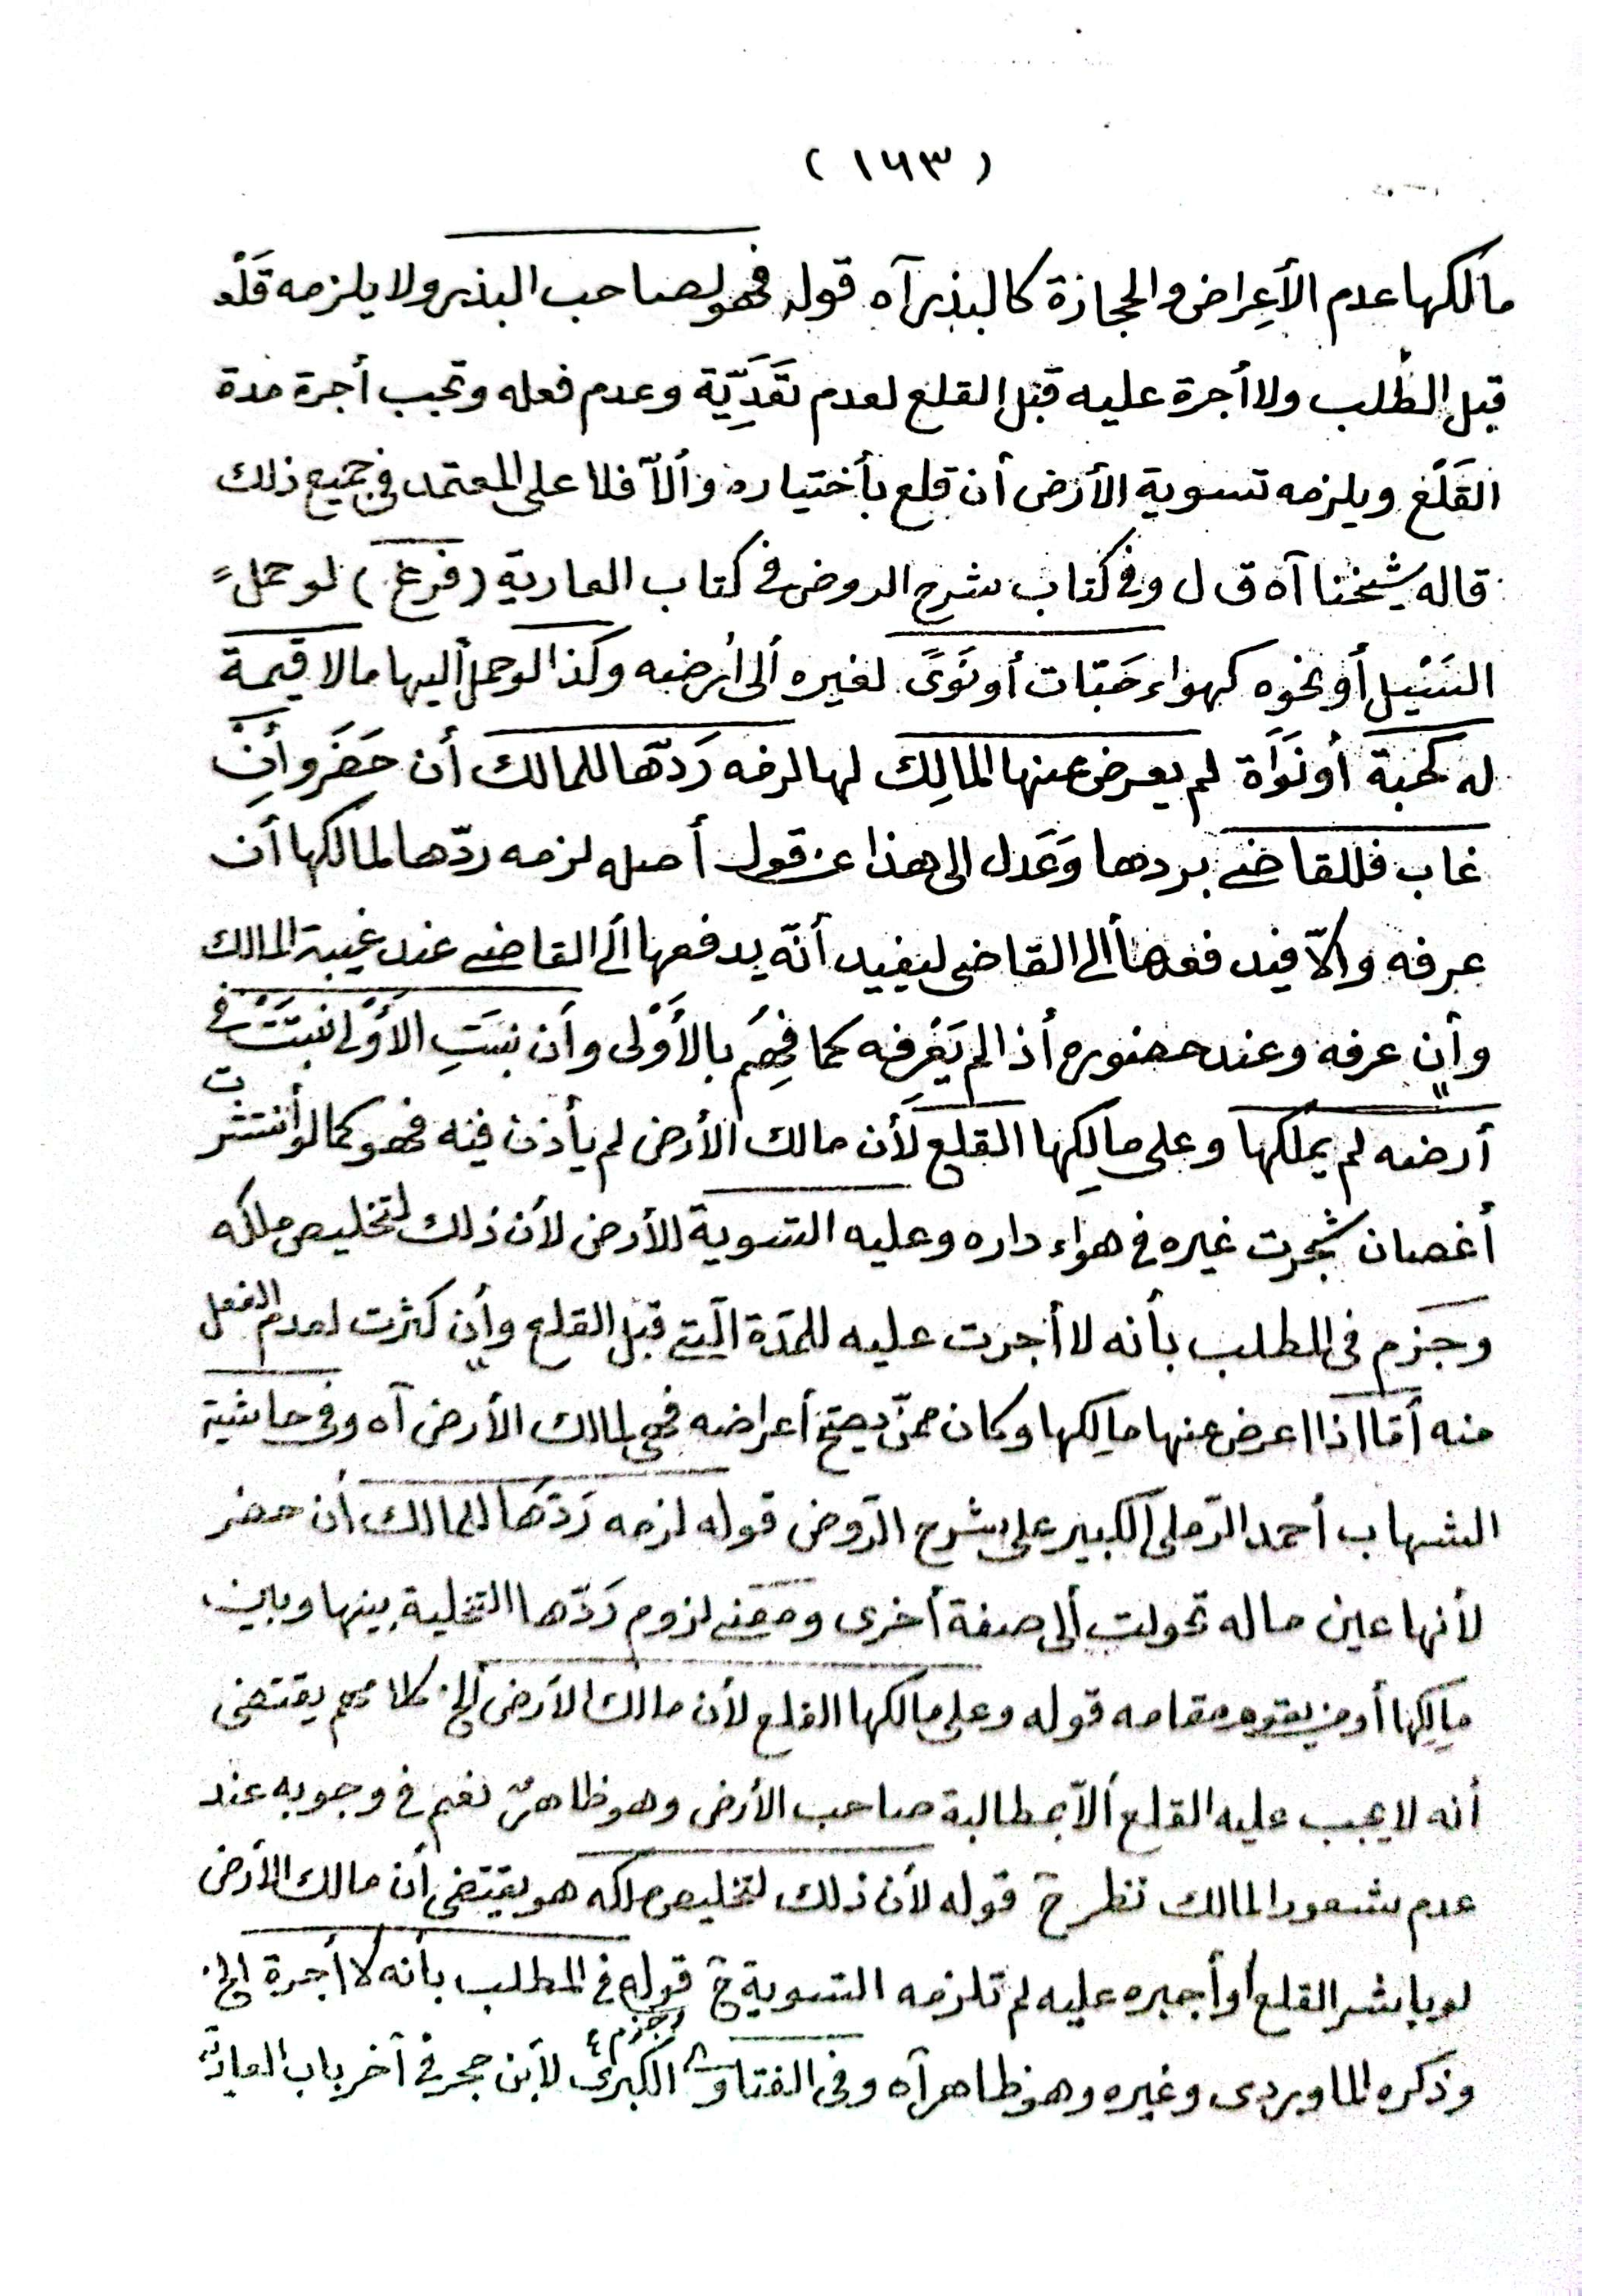 ( ١٦٣ )
مالكها عدم الأَعِراض والجحازة كالبذر آه قوله فهو لصاحب البذر ولا يلزمه قَلْعُ
قبل الطَلب ولا أجرة عليه قبل القلع لعدم تَعَدِّيَة وعدم فعله وتجب أجرة مدة
القَلْع ويلزمه تسوية الأرض أن قلع بأختياره وألاّ فلا على المعتمد في جميع ذلك
قاله شيخنا آه ق ل وفي كتاب شرح الروض في كتاب العارية (فرع) لو حملَ
السَيْيل أو نحوه كهواء حَبّات أو نَوىً لغيره ألى أرضه وكذا لو حمل أليها مالا قيمة
له كحبة أو نَوَاة لم يعرض عنها المالِك لها لزمه رَدّها للمالك أن حَضَر وأنِ
غاب فللقاضي بردها وَعَدل الى هذا عن قول أصله لزمه ردّها لمالكها أن
عرفه والاّ فيد فعها ألى القاضى ليفيد أنّه يدفعها ألى القاضي عند غيبة المالك
وأن عرفه وعند حضوره أذا لم يَعْرِفه كما فُهِمُ بالأَوْلى وأن نبتَتِ الأوْلى نبتَتْ في
أرضه لم يملكها وعلى مالِكِها القلع لَأن مالك الأرض لم يأذن فيه فهو كما لو أنتشرت
أغصان شجرت غيره في هواء داره وعليه التسوية للأرض لأن ذلك لتخليص ملكه
وجَزم في المطلب بأنه لا أجرت عليه للمدّة الّتي قبل القلع وأن كثرت لعدم الفعل
منه أمّا اذا اعرض عنها مالِكها وكان ممنّ يصحّ أعراضه فهى لمالك الأرض آه وفي حاشية
الشهاب أحمد الرّملى الكبير على شرح الرّوض قوله لزمه رَدّها للمالك أن حضر
لأنها عين ماله تحولت ألى صفة أخرى ومعنى لزوم رَدّها التخلية بينها وبين
مالِكِها أو من يقوم مقامه قوله وعلى مالكها القلع لأن مالك الأرض ألخ كلا مهم يقتضى
أنه لا يجب عليه القلع ألاّ بمطالبة صاحب الأرض وهو ظاهرٌ نعم في وجوبه عند
عدم شعور المالك نظر حَ قوله لأن ذلك لتخليص ملكه هو يقتضى أن مالك الأرض
لو باشر القلع أو أجبره عليه لم تلزمه التسوية حَ قوله وجزم في المطلب بأنه لا أجرة الخ
وذكره الماوردى وغيره وهو ظاهر آه وفي الفتاوى الكبرى لأبن حجر في آخر باب العاريّة